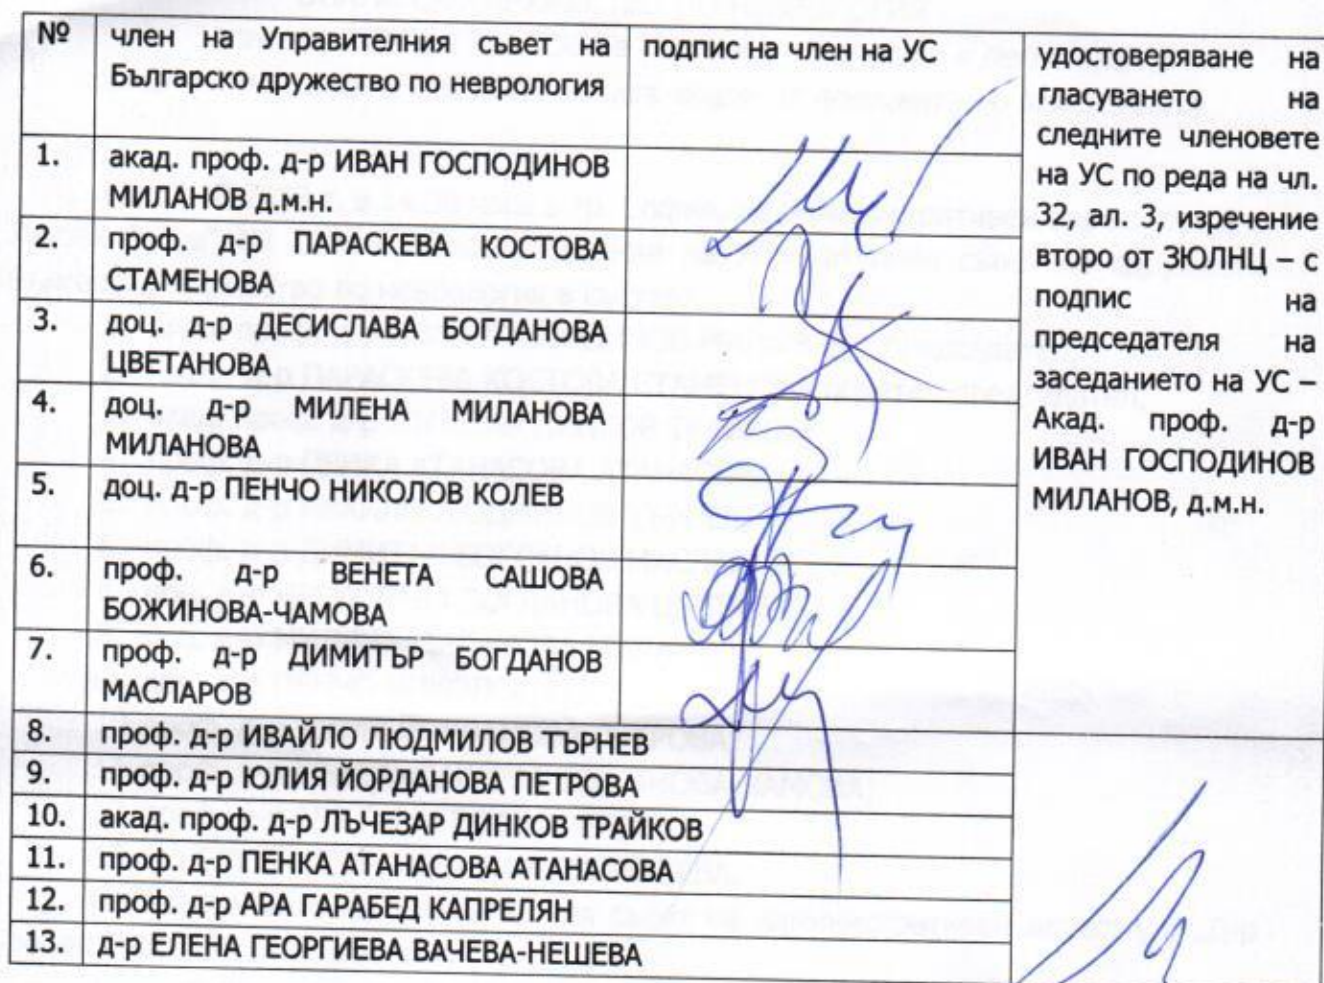 №
член на Управителния съвет на
Българско дружество по неврология
подпис на член на УС
удостоверяване на
гласуването на
следните членовете
на УС по реда на чл.
32, ал. 3, изречение
второ от ЗЮЛНЦ – с
подпис на
председателя на
заседанието на УС –
Акад. проф. д-р
ИВАН ГОСПОДИНОВ
МИЛАНОВ, д.м.н.
1. акад. проф. д-р ИВАН ГОСПОДИНОВ
МИЛАНОВ д.м.н.
2. проф. д-р ПАРАСКЕВА КОСТОВА
СТАМЕНОВА
3. доц. д-р ДЕСИСЛАВА БОГДАНОВА
ЦВЕТАНОВА
4. доц. д-р МИЛЕНА МИЛАНОВА
МИЛАНОВА
5. доц. д-р ПЕНЧО НИКОЛОВ КОЛЕВ
6. проф. д-р ВЕНЕТА САШОВА
БОЖИНОВА-ЧАМОВА
7. проф. д-р ДИМИТЪР БОГДАНОВ
МАСЛАРОВ
8. проф. д-р ИВАЙЛО ЛЮДМИЛОВ ТЪРНЕВ
9. проф. д-р ЮЛИЯ ЙОРДАНОВА ПЕТРОВА
10. акад. проф. д-р ЛЪЧЕЗАР ДИНКОВ ТРАЙКОВ
11. проф. д-р ПЕНКА АТАНАСОВА АТАНАСОВА
12. проф. д-р АРА ГАРАБЕД КАПРЕЛЯН
13. д-р ЕЛЕНА ГЕОРГИЕВА ВАЧЕВА-НЕШЕВА